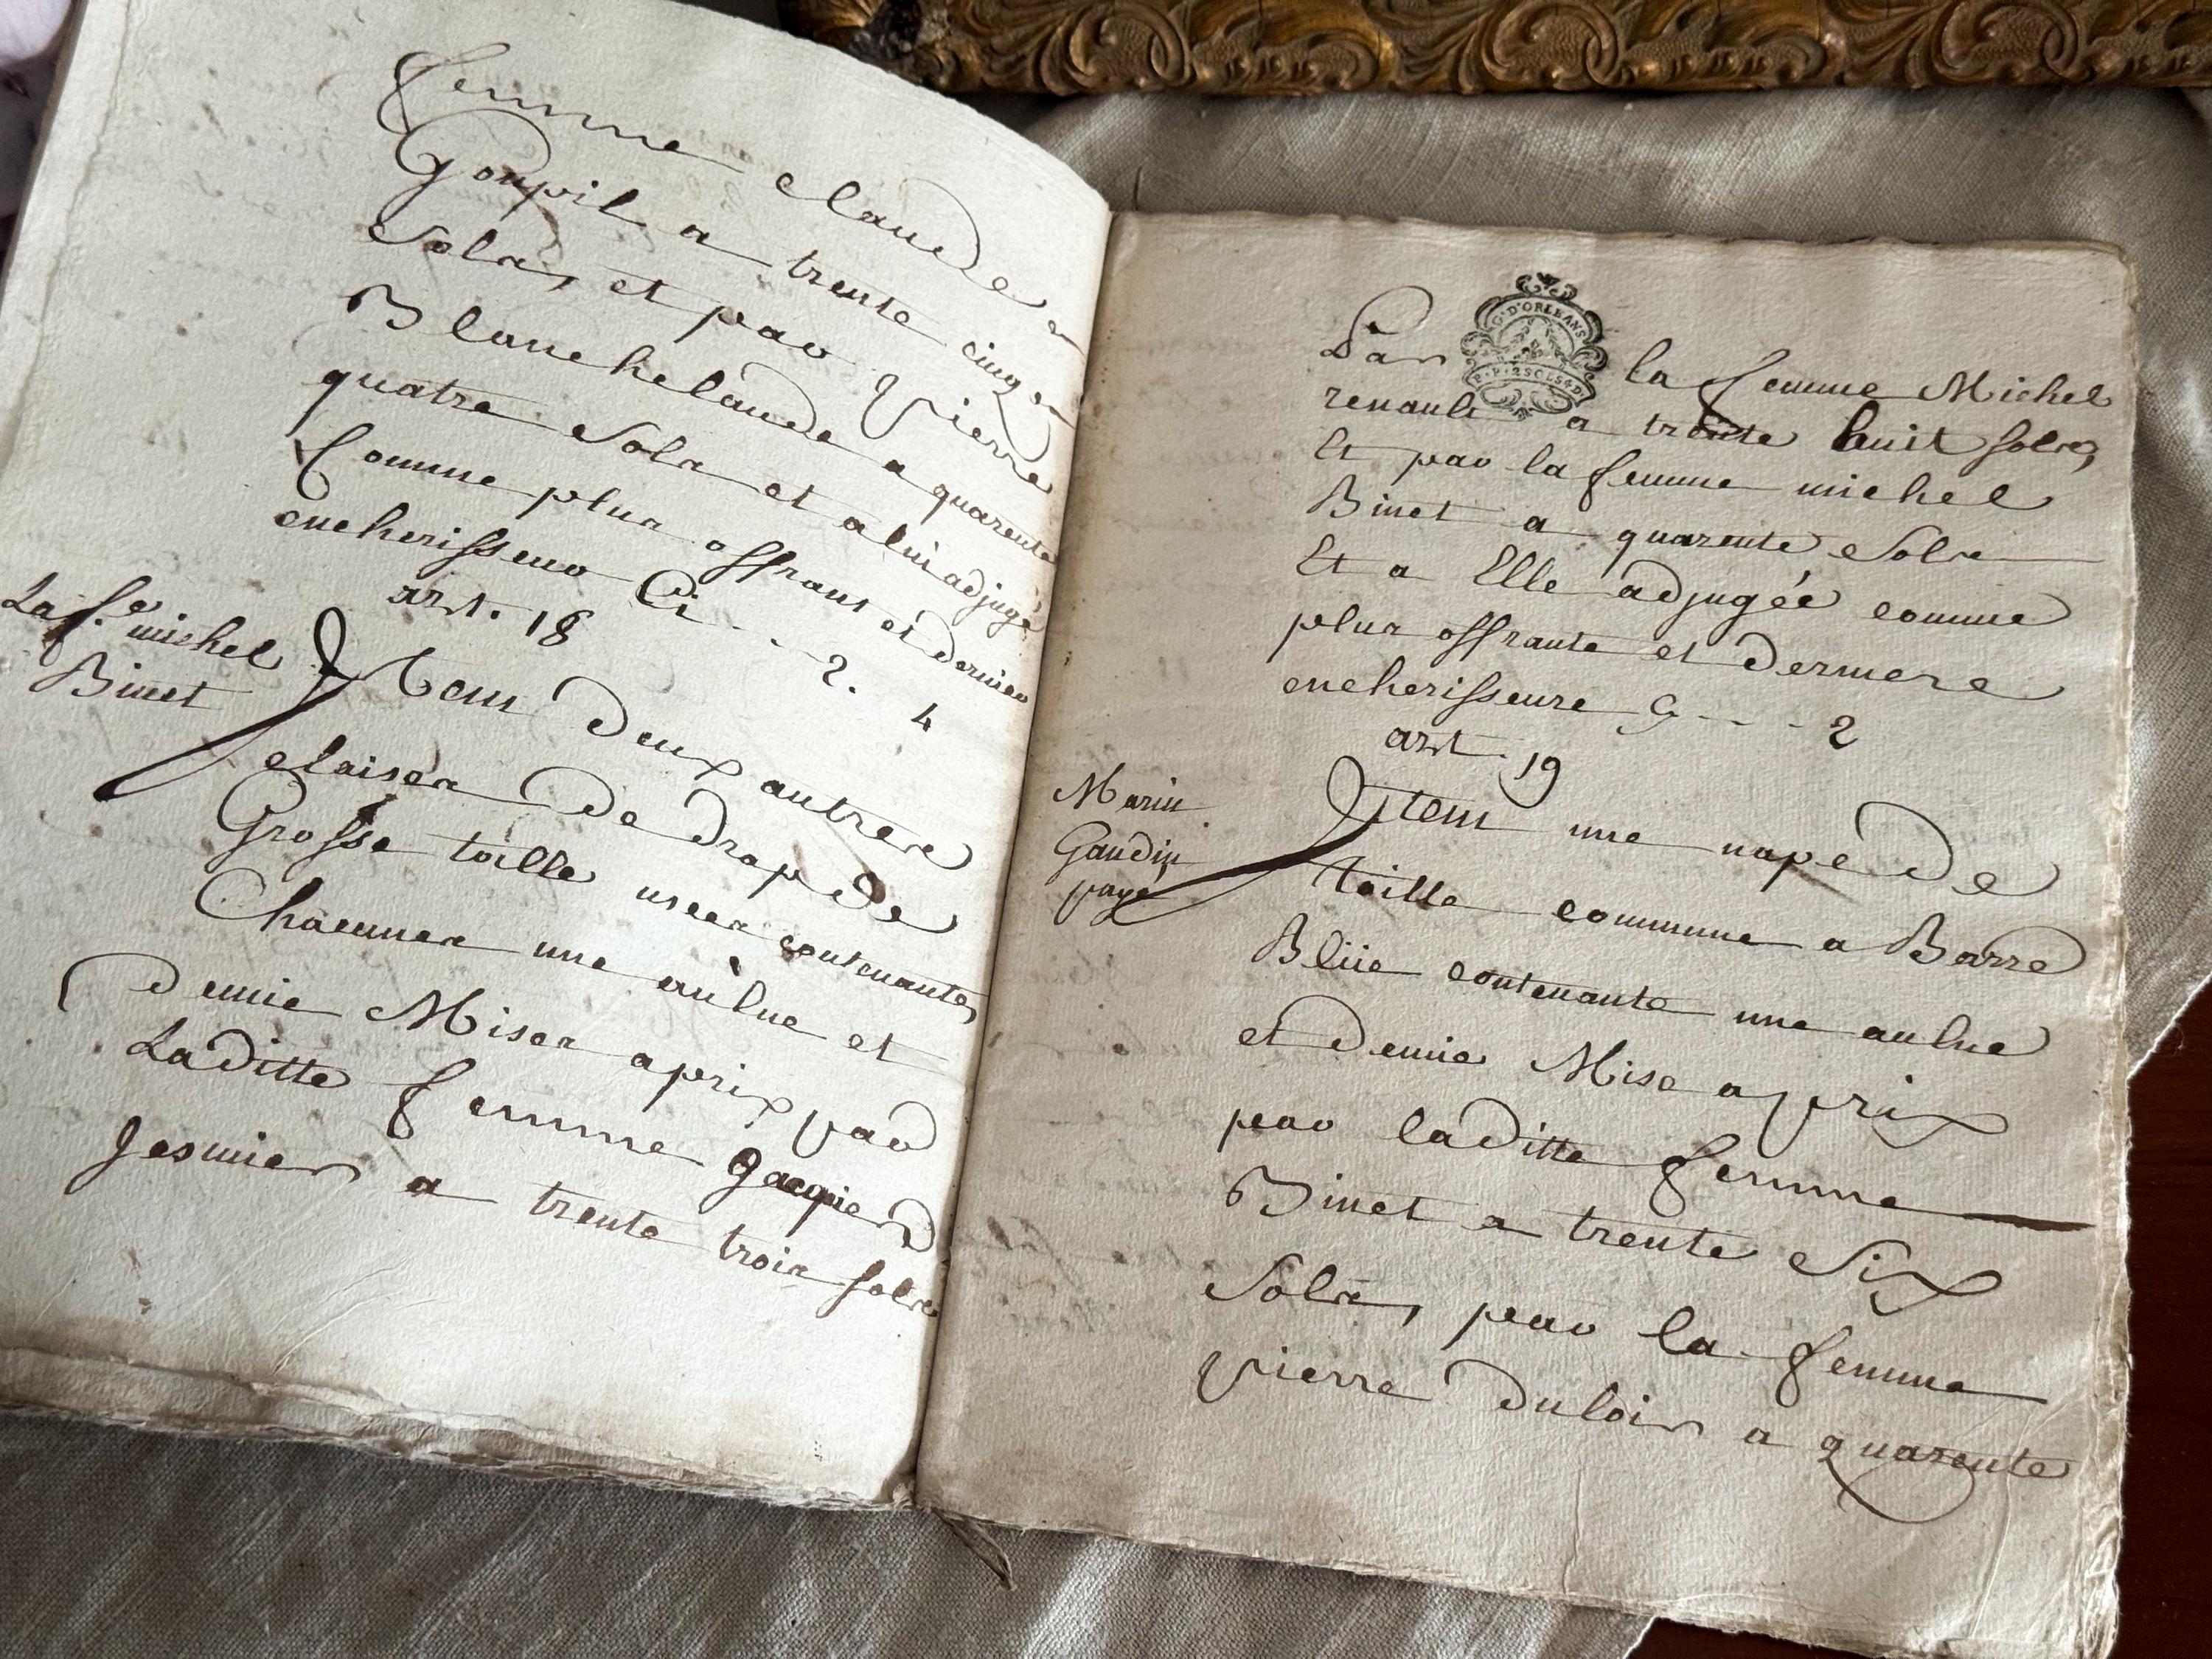 femme Claude
Goupil a trente cinq
Sols, et par Pierre
Blanchelande a quarente
quatre Sols et a lui adjugé
Comme plus offrant et dernier
encherisseur Ci - - - 2. 4
art. 18
La fe. michel
Binet
Item Deux autres
elaises de drap de
Grosse toille usées contenantes
Chacunes une aulne et
demie Mises a prix par
Laditte femme Jacques
Jesmier a trente trois sols
G. D'ORLEANS
P.P. 2 SOLS 4 D
Par la femme Michel
renault a trente huit sols,
Et par la femme michel
Binet a quarente Sols
Et a Elle adjugée comme
plus offrante et derniere
encherisseure Ci - - - 2
art. 19
Marin
Gaudin
payé
Item une nape de
toille commune a Barre
Bliie contenante une aulne
et demie Mise a prix
par laditte femme
Binet a trente Six
Sols, par la femme
Pierre Duloir a quarente